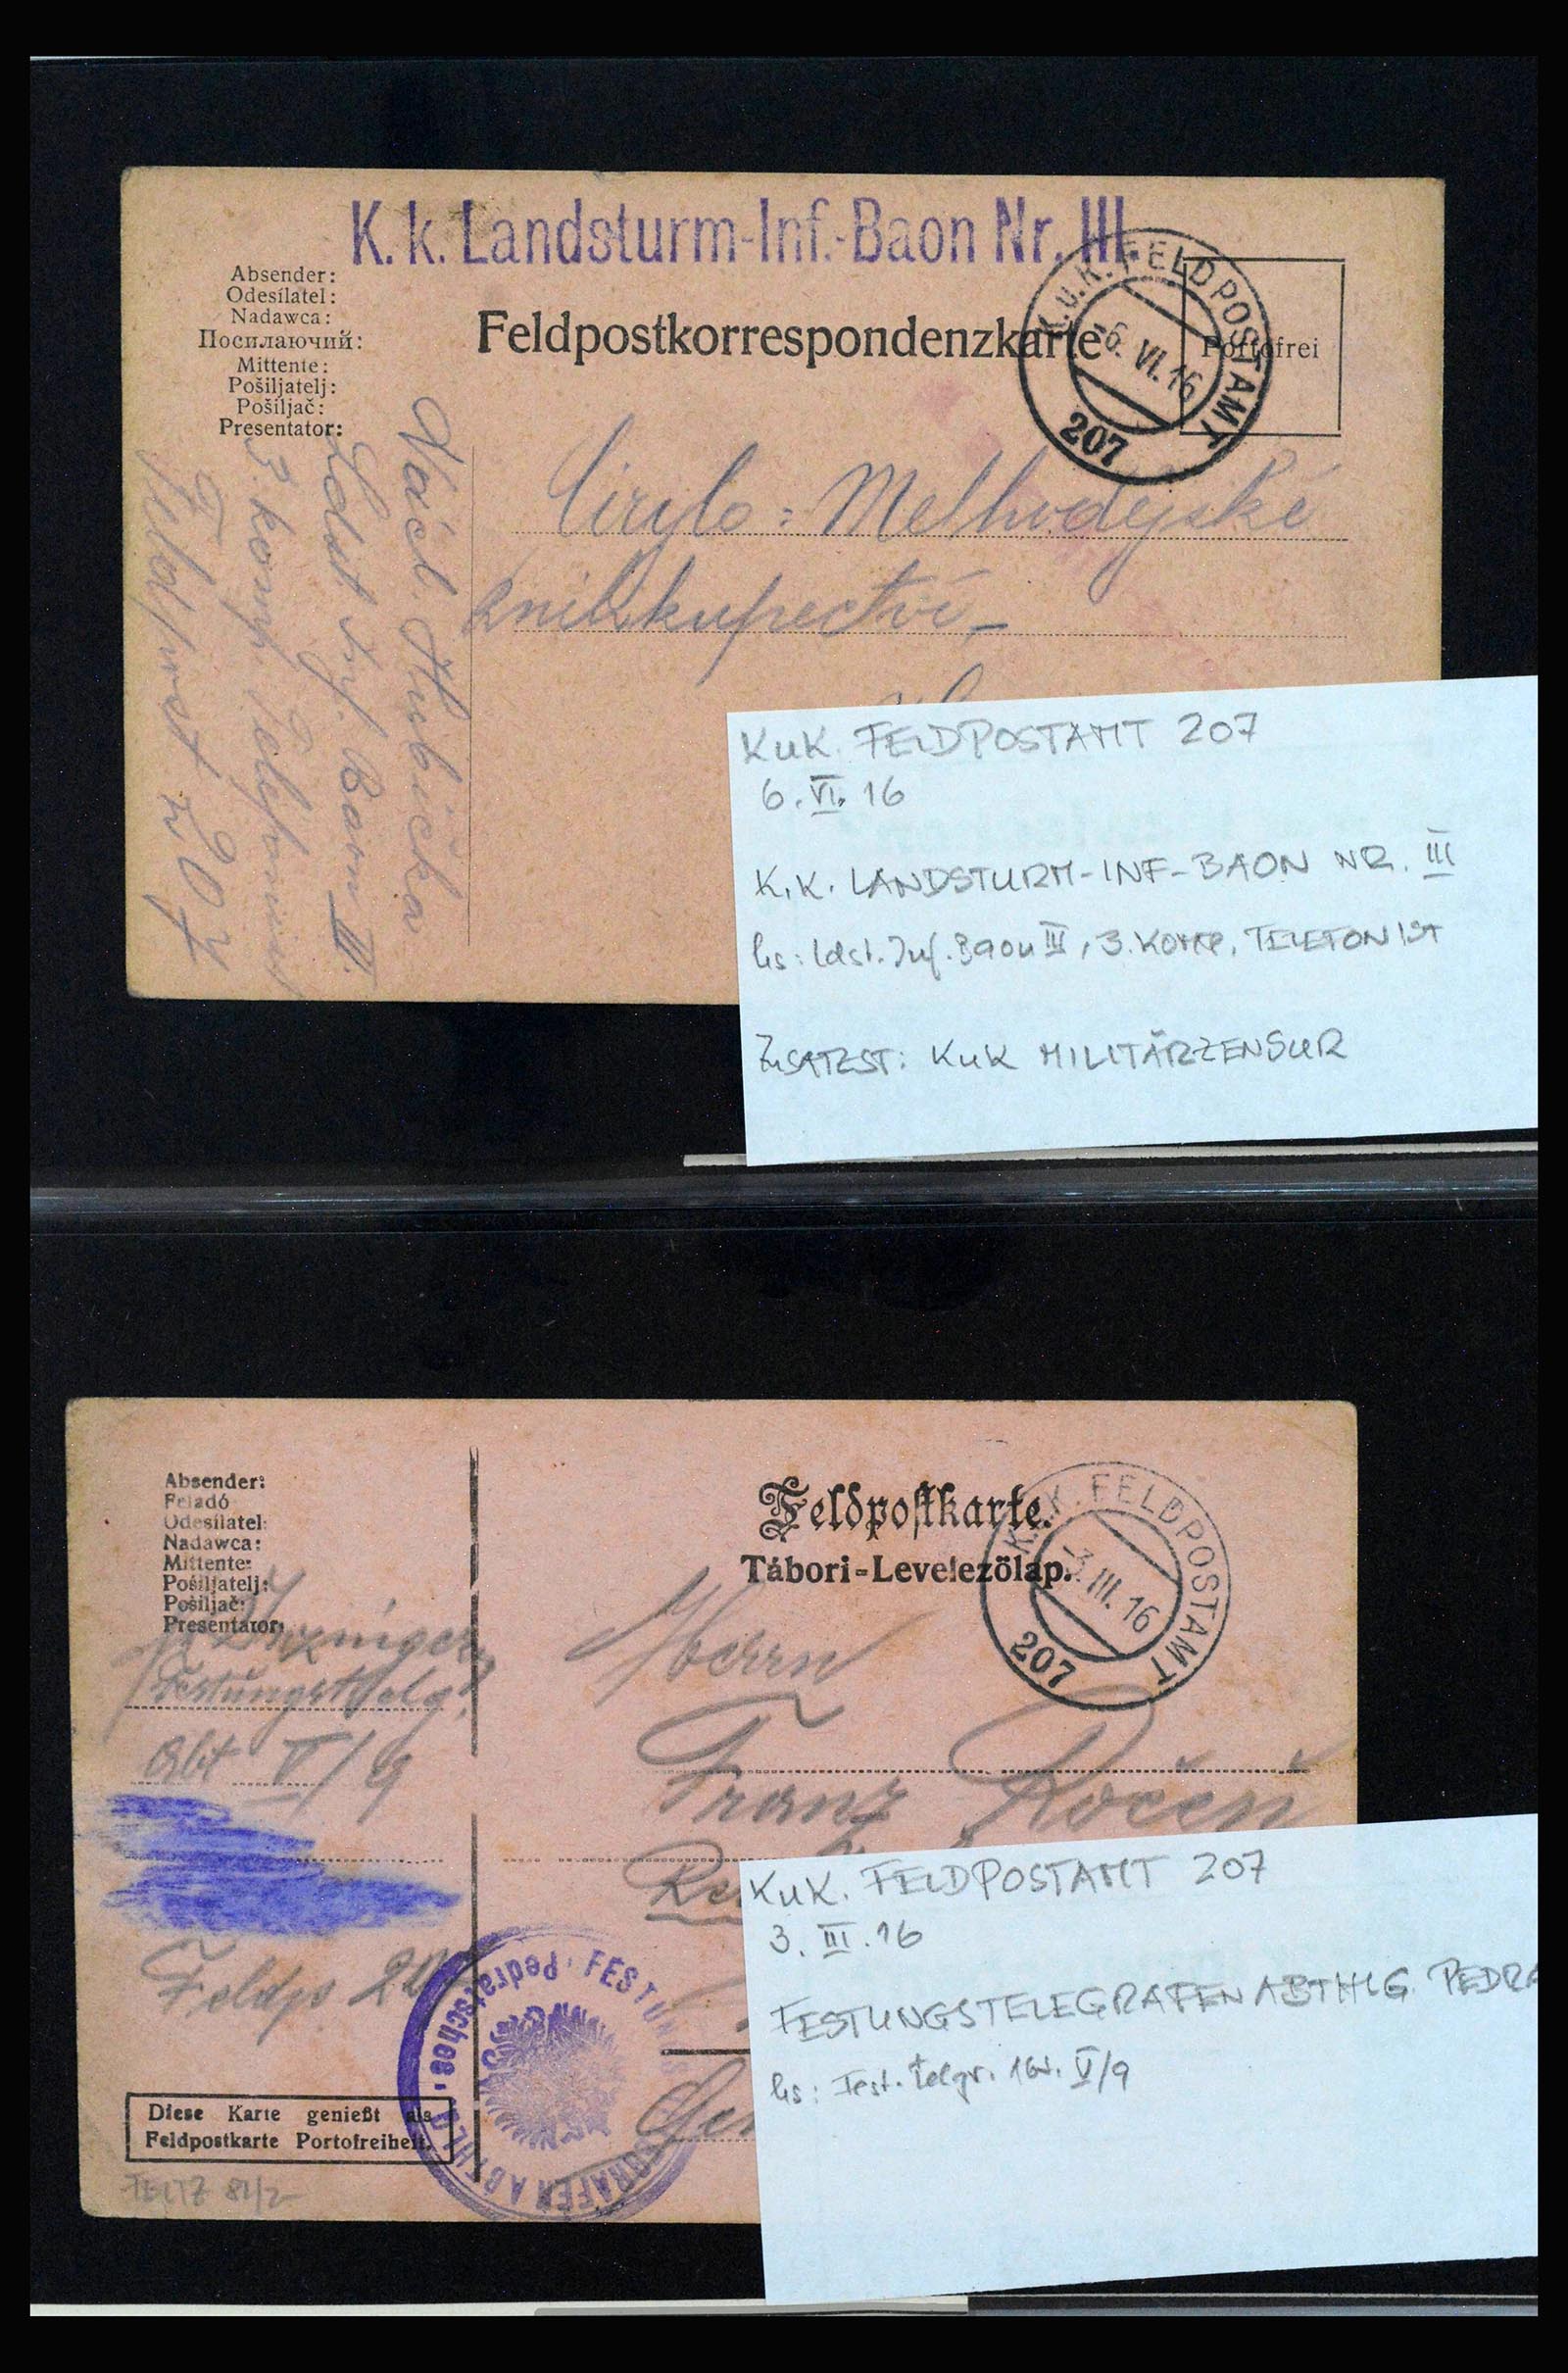 K. k. Landsturm-Inf.-Baon Nr. III.
Absender:
Odesílatel:
Nadawca:
Посилаючий:
Mittente:
Pošiljatelj:
Pošiljač:
Presentator:
Feldpostkorrespondenzkarte
Portofrei
K.u.K. FELDPOSTAMT
-6. VI. 16
207
Václ. Hubička
Ldst. Inf. Baon III.
3. komp. Telefonist
Feldpost N 207
Cyrilo = Methodějské
knihkupectví
KuK. FELDPOSTAMT 207
6. VI. 16
K.K. LANDSTURM-INF-BAON NR. III
hs: Ldst. Inf. Baon III, 3. KOMP, TELEFONIST
ZUSATZST: KuK MILITÄRZENSUR
Absender:
Feladó
Odesílatel:
Nadáwca:
Mittente:
Pošiljatelj:
Pošiljač:
Presentator:
Feldpostkarte.
Tábori-Levelezőlap.
K.u.K. FELDPOSTAMT
-3. III. 16
207
Festungstelg.
Abt V/9
Feldp 207
Herrn
Franz
Pedratsches. FESTUNGS
GRAFEN ABTHLG
Diese Karte genießt als
Feldpostkarte Portofreiheit.
KuK. FELDPOSTAMT 207
3. III. 16
FESTUNGSTELEGRAFENABTHLG. PEDRA
hs: Fest. telgr. Abt. V/9